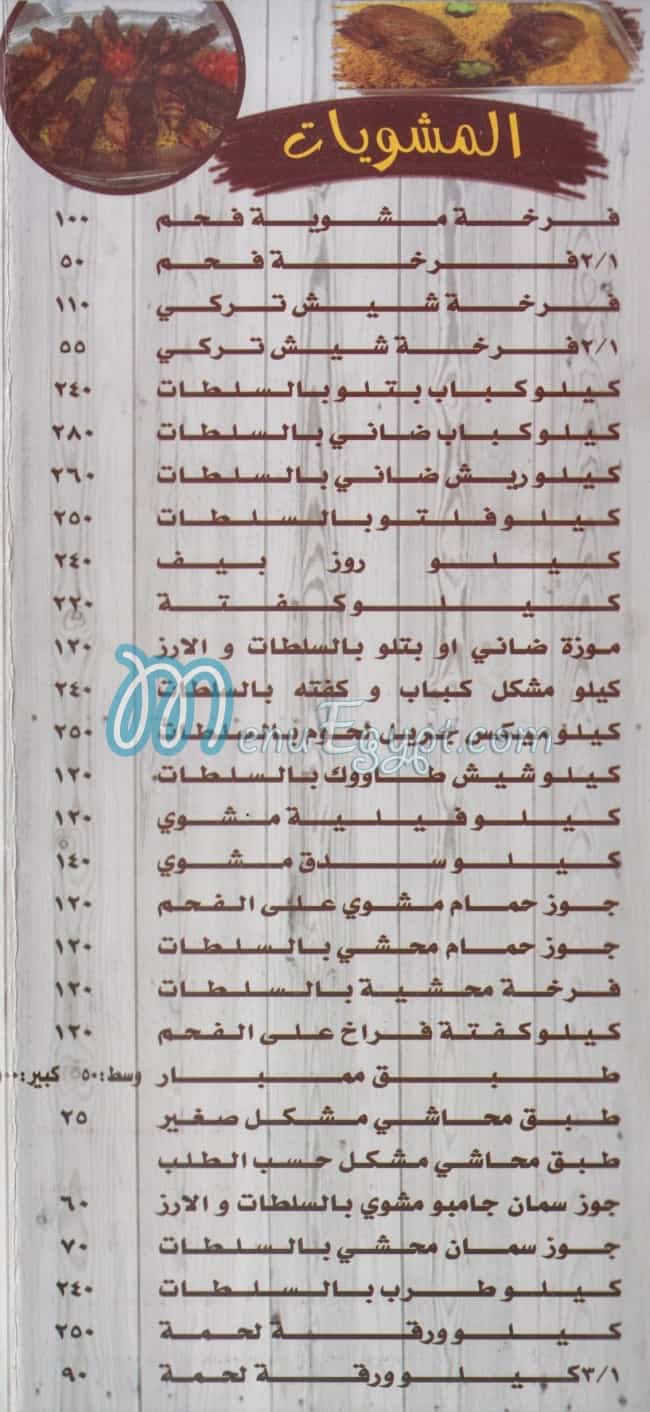 المشويات
فرخة مشوية فحم ١٠٠
٢/١ فرخة فحم ٥٠
فرخة شيش تركي ١١٠
٢/١ فرخة شيش تركي ٥٥
كيلو كباب بتلو بالسلطات ٢٤٠
كيلو كباب ضاني بالسلطات ٢٨٠
كيلو ريش ضاني بالسلطات ٢٦٠
كيلو فلتو بالسلطات ٢٥٠
كيلو روز بيف ٢٤٠
كيلو كفتة ٢٢٠
موزة ضاني او بتلو بالسلطات و الارز ١٢٠
كيلو مشكل كباب و كفته بالسلطات ٢٤٠
كيلو ميكس جريل لحوم بالسلطات ٢٥٠
MenuEgypt.com
كيلو شيش طاووك بالسلطات ١٢٠
كيلو فيلية مشوي ١٢٠
كيلو سدق مشوي ١٤٠
جوز حمام مشوي على الفحم ١٢٠
جوز حمام محشي بالسلطات ١٢٠
فرخة محشية بالسلطات ١٢٠
كيلو كفتة فراخ على الفحم ١٢٠
طبق ممبار وسط:٥٠ كبير:
طبق محاشي مشكل صغير ٢٥
طبق محاشي مشكل حسب الطلب
جوز سمان جامبو مشوي بالسلطات و الارز ٦٠
جوز سمان محشي بالسلطات ٧٠
كيلو طرب بالسلطات ٢٤٠
كيلو ورقة لحمة ٢٥٠
٣/١ كيلو ورقة لحمة ٩٠